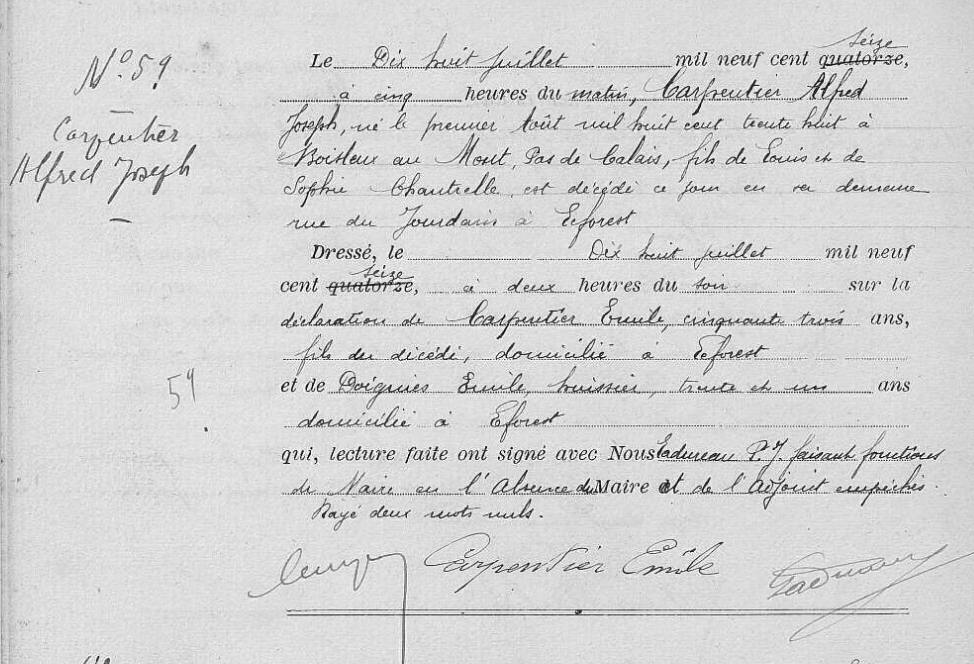 N° 59
Carpentier
Alfred Joseph
Le Dix huit juillet mil neuf cent quatorze, seize
à cinq heures du matin, Carpentier Alfred
Joseph, né le premier Août mil huit cent trente huit à
Boisleux au Mont, Pas de Calais, fils de Louis et de
Sophie Chantrelle, est décédé ce jour en sa demeure
rue du Jourdain à Ecforest
Dressé, le Dix huit juillet mil neuf
cent quatorze, seize à deux heures du soir sur la
déclaration de Carpentier Emile, cinquante trois ans,
fils du décédé, domicilié à Ecforest
59
et de Doignies Emile, huissier, trente et un ans
domicilié à Eforest
qui, lecture faite ont signé avec Nous P. J. faisant fonctions
de Maire en l'Absence du Maire et de l'Adjoint empêchés.
Rayé deux mots nuls.
Carpentier Emile